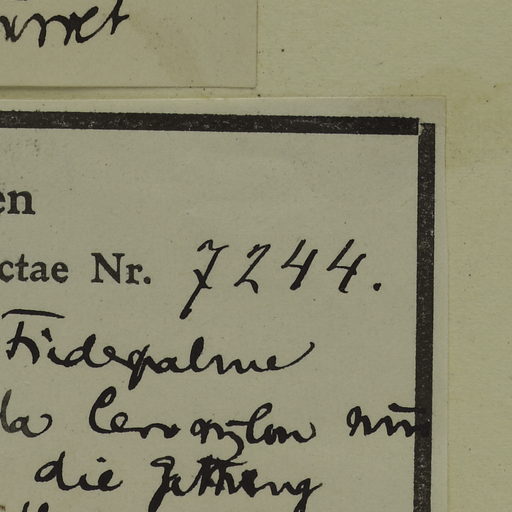 en
ctae Nr. 7244.
Fiederpalme
da Ceroxylon nur
die Gattung